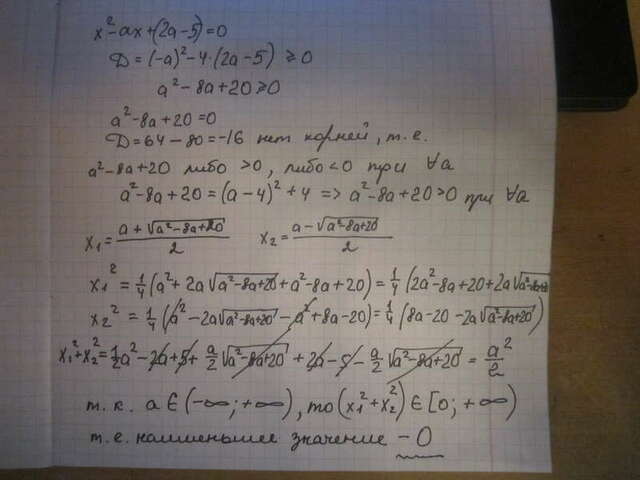 x²-ax+(2a-5)=0
D=(-a)²-4·(2a-5) ≥0
a²-8a+20≥0
a²-8a+20=0
D=64-80=-16 нет корней, т.е.
a²-8a+20 либо >0, либо <0 при ∀a
a²-8a+20=(a-4)²+4 => a²-8a+20>0 при ∀a
x₁=(a+√(a²-8a+20))/2 x₂=(a-√(a²-8a+20))/2
x₁²=1/4(a²+2a√(a²-8a+20)+a²-8a+20)=1/4(2a²-8a+20+2a√(a²-8a+20)
x₂²=1/4(a²-2a√(a²-8a+20)-a²+8a-20)=1/4(8a-20-2a√(a²-8a+20))
x₁²+x₂²=1/2a²-2a+5+a/2√(a²-8a+20)+2a-5-a/2√(a²-8a+20)=a²/2
т.к. a∈(-∞;+∞), то (x₁²+x₂²)∈[0;+∞)
т.е. наименьшее значение -0